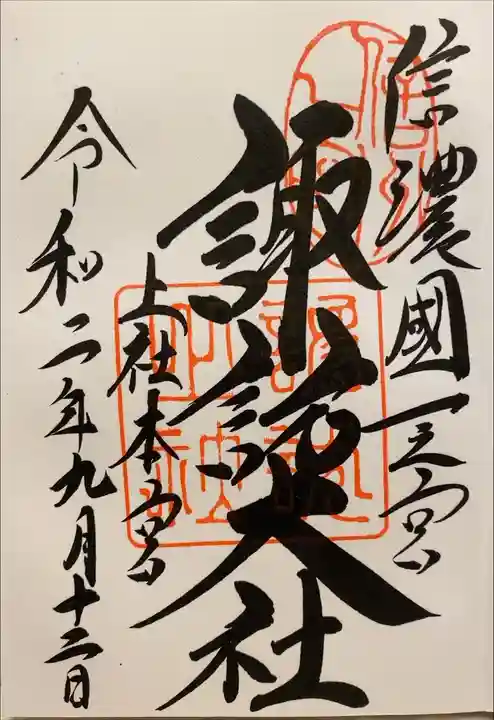 信濃國一之宮
諏訪大社
上社本宮
令和二年九月十二日